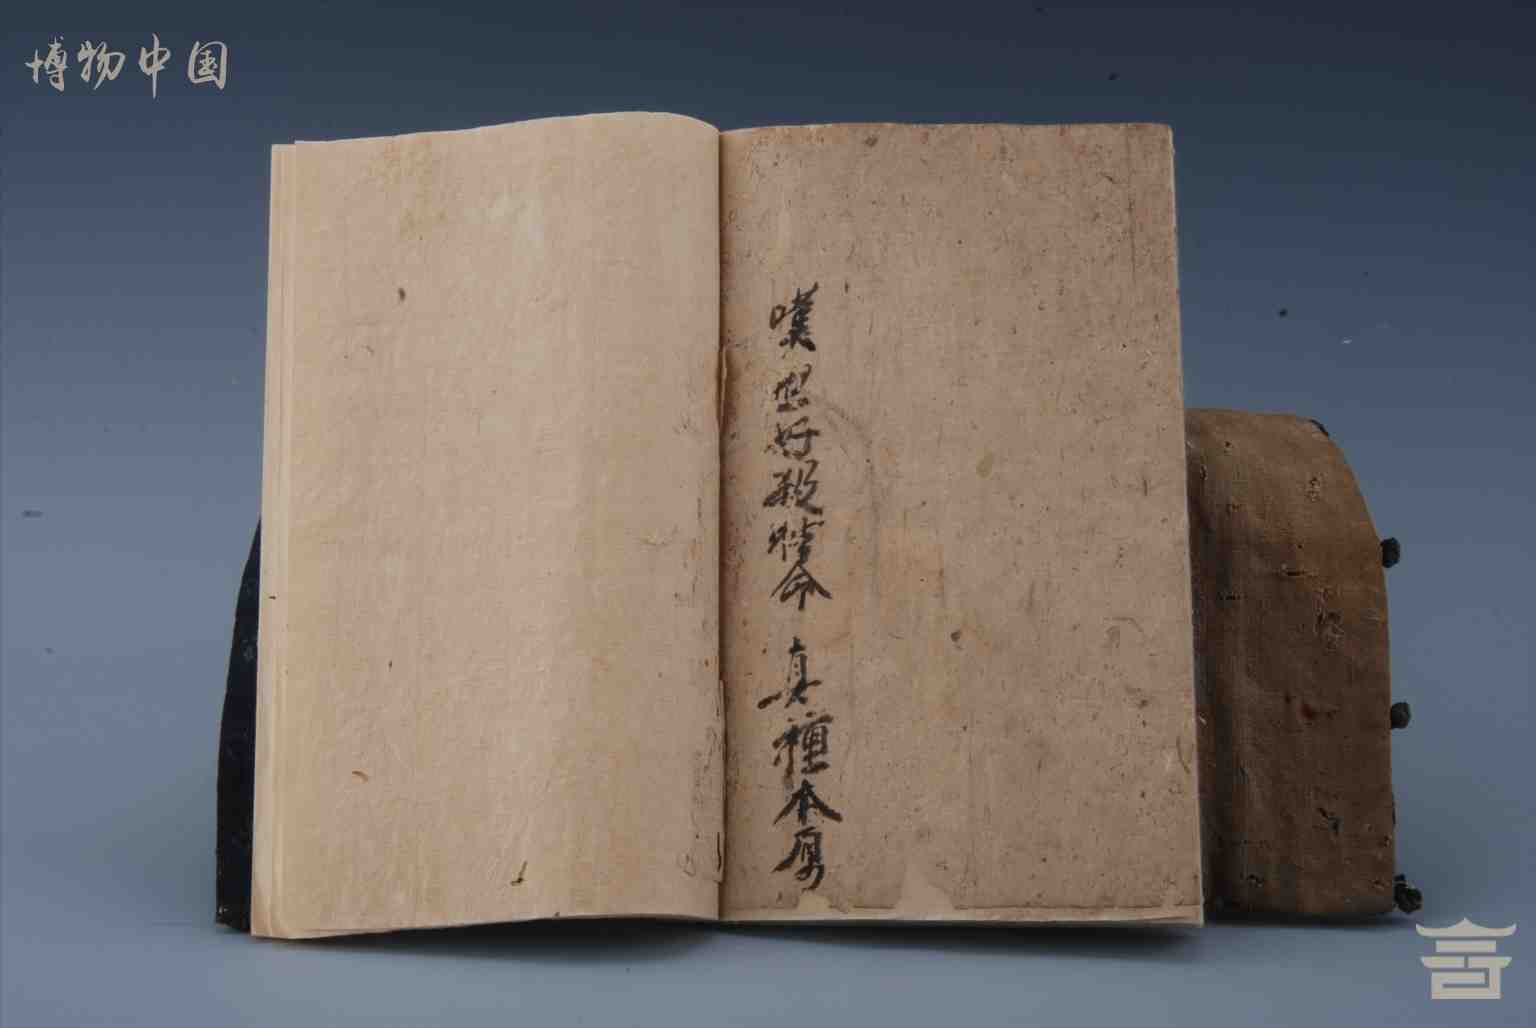 博物中国
嘆世好殺牲命 真種本原